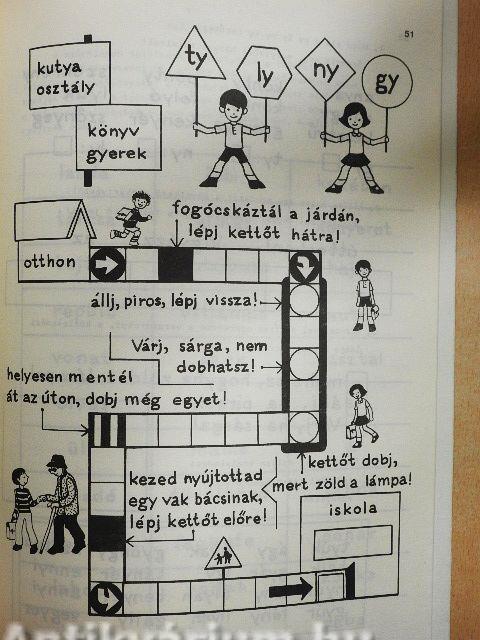 51
kutya
osztály
könyv
gyerek
ty
ly
ny
gy
fogócskáztál a járdán,
lépj kettőt hátra!
otthon
állj, piros, lépj vissza!
Várj, sárga, nem
dobhatsz!
helyesen mentél
át az úton, dobj még egyet!
kettőt dobj,
mert zöld a lámpa!
kezed nyújtottad
egy vak bácsinak,
lépj kettőt előre!
iskola
Antikvárium.hu